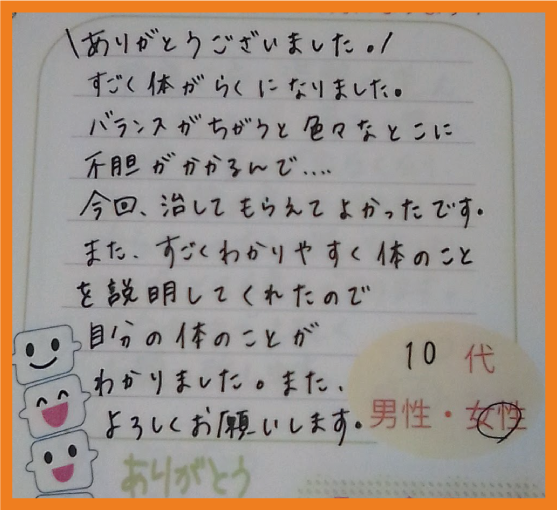 \ありがとうございました。/
すごく体がらくになりました。
バランスがちがうと色々なとこに
不胆がかかるんで....
今回、治してもらえてよかったです。
また、すごくわかりやすく体のこと
を説明してくれたので
自分の体のことが
わかりました。また、
よろしくお願いします。
10代
男性・女性
ありがとう